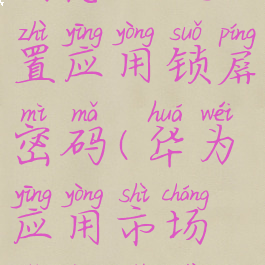 zhì yīng yòng suǒ píng
置应用锁屏
mì mǎ huá wéi
密码(华为
yīng yòng shì cháng
应用市场